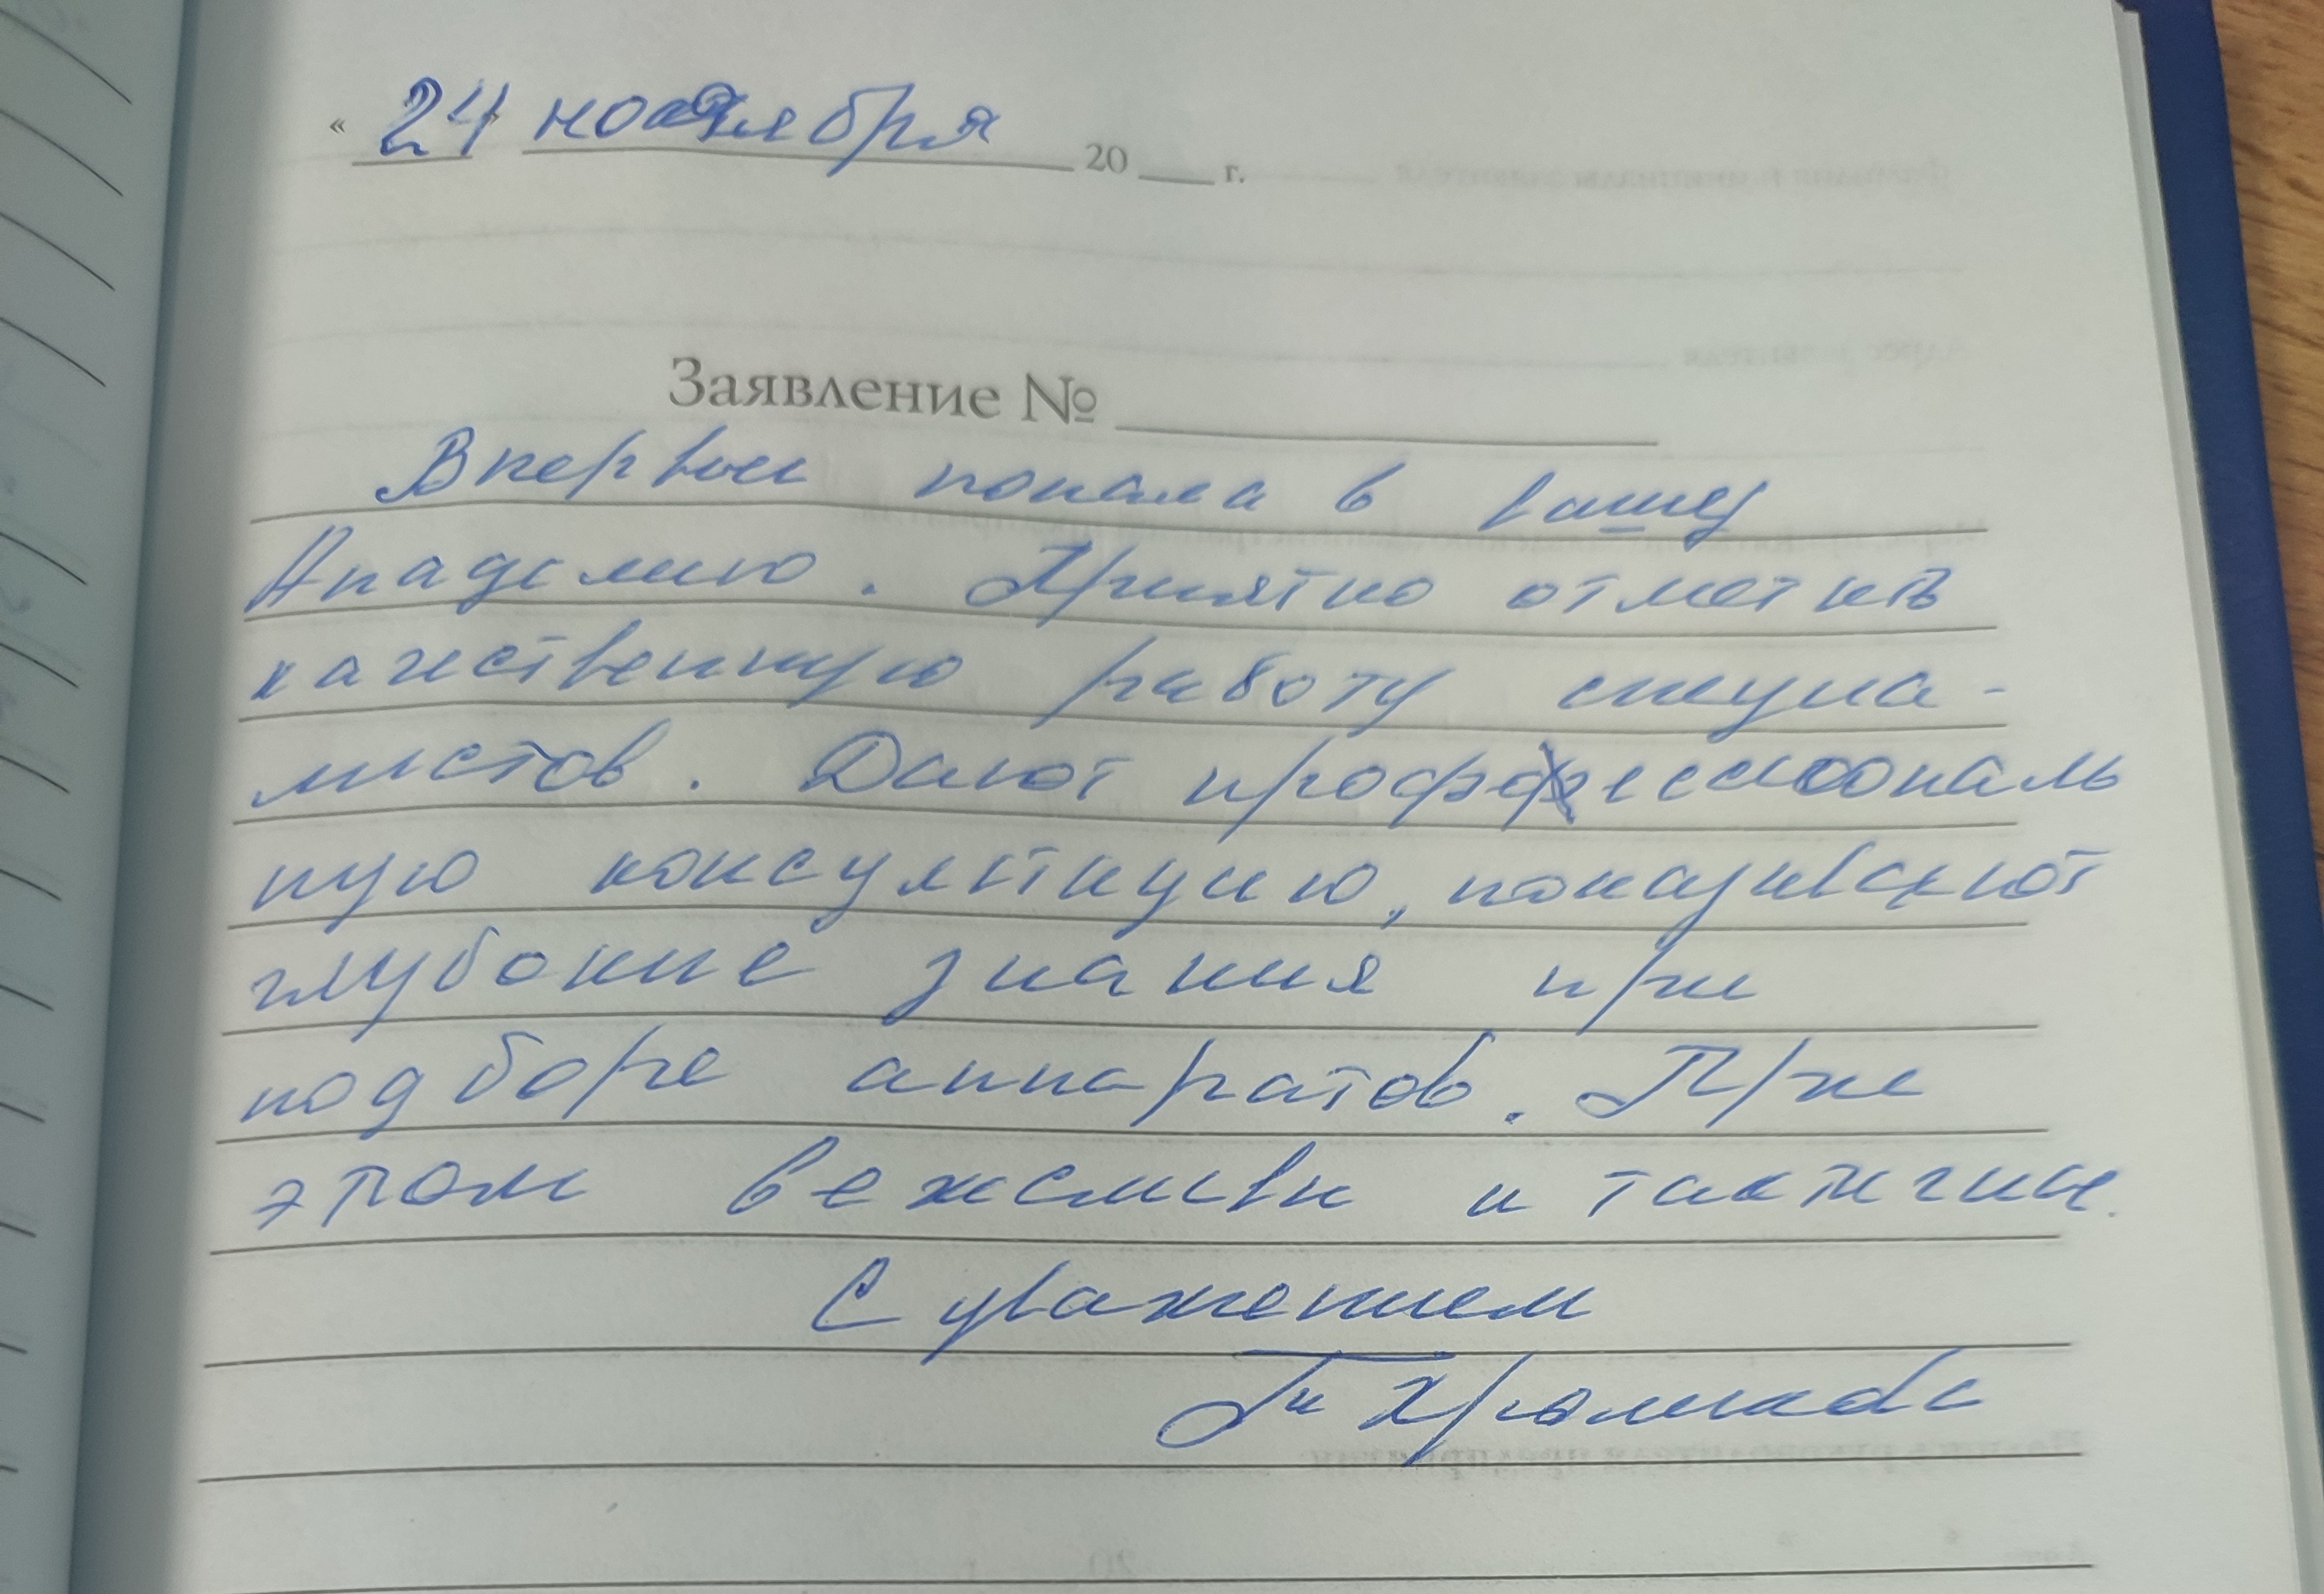 « 24 » ноября 20 ___ г.
Заявление № ___
Впервые попала в вашу
Академию. Приятно отметить
качественную работу специа-
листов. Дают профессиональ
ную консультацию, показывают
глубокие знания при
подборе аппаратов. При
этом вежливы и тактичны.
С уважением